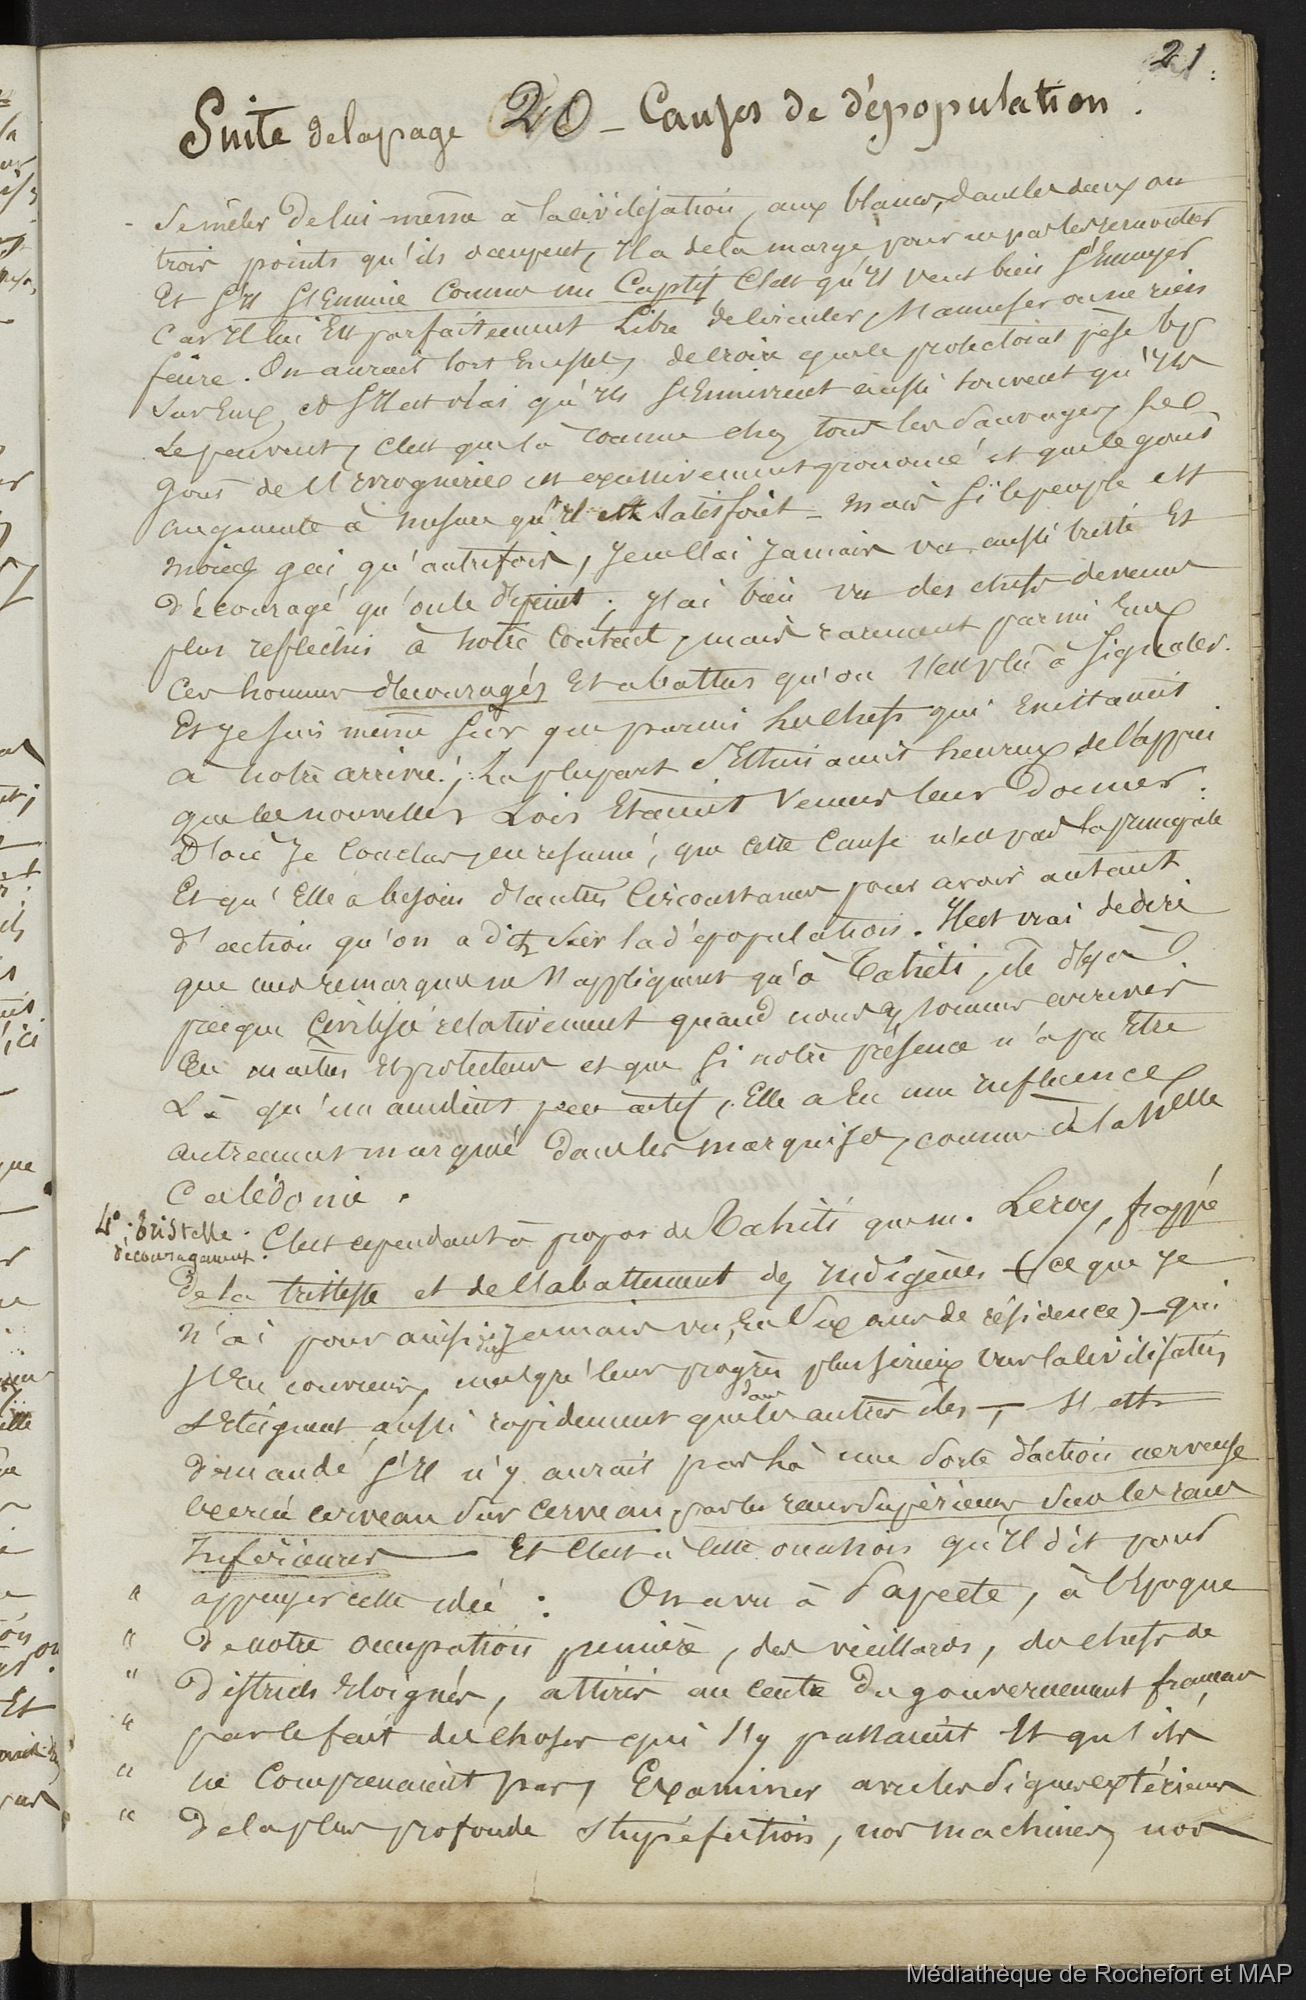 21
Suite de la page 20 - Causes de dépopulation.
Se mêler de lui même à la civilisation, aux blancs, dans les deux ou
trois points qu'ils occupent, Il a de la marge pour ne pas les
Et S'Il S'Ennuie Comme un Captif C'est qu'Il veut bien S'Ennuyer
Car Il lui Est parfaitement Libre de circuler, S'amuser ou ne rien
faire. On aurait tort En effet, de croire que le protectorat pèse
Sur Eux, et S'Il est vrai qu'Ils S'Ennivrent aussi souvent qu'Ils
Le peuvent, C'est que là comme chez tous les Sauvages, Le
Gout de l'Ivrognerie est excessivement prononcé et que le gout
augmente à mesure qu'Il est Satisfait - mais Si le peuple est
moins gai qu'autrefois, Je ne l'ai Jamais vu aussi triste Et
découragé qu'on le dépeint; J'ai bien vu des chefs devenus
plus réfléchis à notre Contact, mais rarement parmi Eux
Ces hommes découragés Et abattus qu'on s'est plû à Signaler.
Et Je Suis même Sûr que parmi les Chefs qui Existaient
à notre arrivée, La plupart S'Estimaient heureux de l'appui
que les nouvelles Lois Etaient Venues leur Donner.
D'où Je Conclus, en résumé, que cette Cause n'est pas la principale
Et qu'Elle a besoin d'autres Circonstances pour avoir autant
d'action qu'on a dit, Sur la dépopulation. Il est vrai de dire
que ces remarques ne S'appliquent qu'à Tahiti, île déjà
presque Civilisée relativement quand nous y sommes arrivés
En maîtres Et protecteurs et que Si notre présence n'a pu Etre
Là qu'un peu actif, Elle a Eu une influence
autrement marquée dans les marquises, comme à la Nelle
Calédonie.
4°. tristesse.
découragement.
C'est cependant à propos de Tahiti que m. Leroy, frappé
de la tristesse et de l'abattement des Indigènes (ce que Je
n'ai pour ainsi dire Jamais vu, En Six ans de résidence) - qui
S'En couvrent, malgré leur progrès plus sérieux vers la civilisation,
S'Eteignent aussi rapidement que dans les autres îles -, S'est
demandé S'Il n'y aurait pas là une Sorte d'action nerveuse
exercée cerveau Sur Cerveau, par les races Supérieures Sur les races
Inférieures — Et C'est à cette occasion qu'Il dit pour
" appuyer cette idée : On a vu à Papeete, à l'Epoque
" De notre occupation première, des vieillards, des chefs de
" Districts Eloignés, attirés au centre Du gouvernement français
" par le fait des choses qui S'y passaient Et qu'ils
" ne Comprenaient pas, Examiner avec les Signes extérieurs
" De la plus profonde stupéfaction, nos machines, nos
Médiathèque de Rochefort et MAP